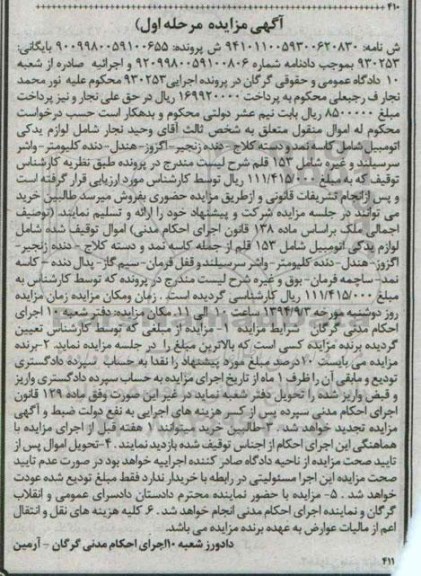 ۴۱۰
آگهی مزایده مرحله اول)
ش نامه: ۹۴۱۰۱۱۰۰۵۹۳۰۰۶۲۰۸۳۰ ش پرونده: ۹۰۰۹۹۸۰۰۵۹۱۰۰۶۵۵ بایگانی:
۹۳۰۲۵۳ بموجب دادنامه شماره ۹۲۰۹۹۸۰۰۵۹۱۰۰۸۰۶ و اجرائیه صادره از شعبه
۱۰ دادگاه عمومی و حقوقی گرگان در پرونده اجرایی۹۳۰۲۵۳ محکوم علیه نور محمد
نجار ف رجبعلی محکوم به پرداخت ۱۶۹۹۲۰۰۰۰ ریال در حق علی نجار و نیز پرداخت
مبلغ ۸۵۰۰۰۰۰ ریال بابت نیم عشر دولتی محکوم و بدهکار است حسب درخواست
محکوم له اموال منقول متعلق به شخص ثالث آقای وحید نجار شامل لوازم یدکی
اتومبیل شامل کاسه نمد و دسته کلاج- دنده زنجیر- اگزوز- هندل- دنده کلیومتر- واشر
سرسیلند و غیره شامل ۱۵۳ قلم شرح لیست مندرج در پرونده طبق نظریه کارشناس
توقیف که به مبلغ ۱۱۱/۴۱۵/۰۰۰ ریال توسط کارشناس مورد ارزیابی قرار گرفته است
و پس ازانجام تشریفات قانونی و ازطریق مزایده حضوری بفروش میرسد طالبین خرید
می توانند در جلسه مزایده شرکت و پیشنهاد خود را ارائه و تسلیم نمایند. (توصیف
اجمالی ملک براساس ماده ۱۳۸ قانون اجرای احکام مدنی) اموال توقیف شده شامل
لوازم یدکی اتومبیل شامل ۱۵۳ قلم از جمله کاسه نمد و دسته کلاج - دنده زنجیر-
اگزوز-هندل- دنده کلیومتر- واشر سرسیلند و قفل فرمان- سیم گاز- پدال دنده - کاسه
نمد- ساچمه فرمان- بوق و غیره شرح لیست مندرج در پرونده که توسط کارشناس به
مبلغ ۱۱۱/۴۱۵/۰۰۰ ریال کارشناسی گردیده است. . زمان ومکان مزایده زمان مزایده
روز دوشنبه مورخه ۱۳۹۴/۹/۳ ساعت ۱۰ الی ۱۱. مکان مزایده: دفتر شعبه ۱۰ اجرای
احکام مدنی گرگان شرایط مزایده ۱- مزایده از مبلغی که توسط کارشناس تعیین
گردیده برنده مزایده کسی است که بالاترین مبلغ را در جلسه مزایده نماید. ۲-برنده
مزایده می بایست ۱۰درصد مبلغ مورد پیشنهاد را نقدا به حساب سپرده دادگستری
تودیع و مابقی آن را ظرف ۱ ماه از تاریخ اجرای مزایده به حساب سپرده دادگستری واریز
و قبض واریز شده را تحویل دفتر شعبه نماید در غیر این صورت وفق ماده ۱۲۹ قانون
اجرای احکام مدنی سپرده پس از کسر هزینه های اجرایی به نفع دولت ضبط و آگهی
مزایده تجدید خواهد شد . ۳-طالبین خرید میتوانند ۱ هفته قبل از اجرای مزایده با
هماهنگی این اجرای احکام از اجناس توقیف شده بازدید نمایند . ۴-تحویل اموال پس از
تایید صحت مزایده از ناحیه دادگاه صادر کننده اجراییه خواهد بود در صورت عدم تایید
صحت مزایده این اجرا مسئولیتی در رابطه با خریدار ندارد فقط مبلغ تودیع شده عودت
خواهد شد . ۵- مزایده با حضور نماینده محترم دادستان دادسرای عمومی و انقلاب
گرگان و نماینده اجرای احکام مدنی انجام خواهد شد . ۶- کلیه هزینه های نقل و انتقال
اعم از مالیات عوارض به عهده برنده مزایده می باشد.
دادورز شعبه ۱۰اجرای احکام مدنی گرگان - آرمین
۴۱۱